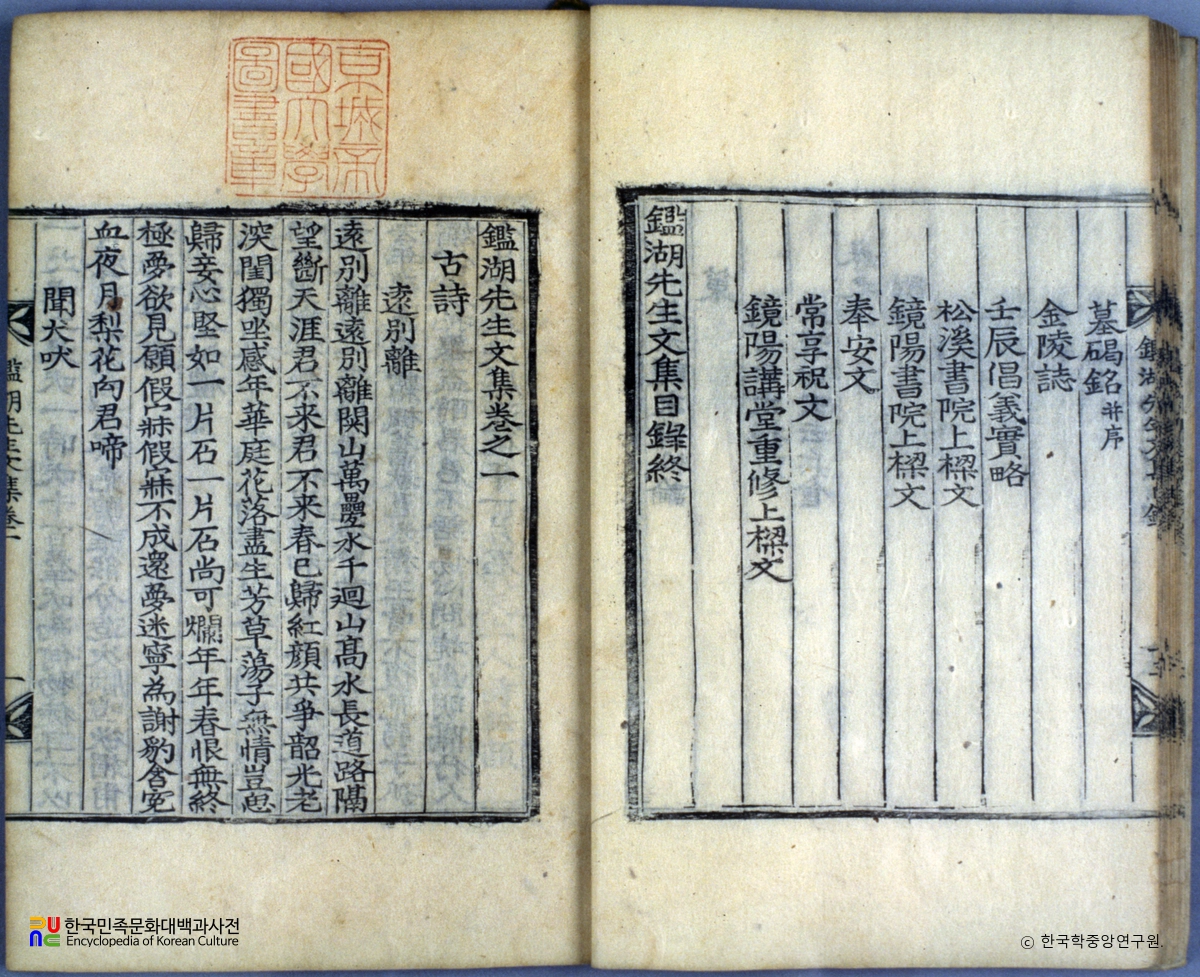 墓碣銘 并序
金陵誌
壬辰倡義實略
松溪書院上樑文
鏡陽書院上樑文
奉安文
常享祝文
鏡陽講堂重修上樑文
鑑湖先生文集目錄終
京城帝
國大學
圖書章
鑑湖先生文集卷之一
古詩
遠別離
遠別離遠別離関山萬疊水千迴山髙水長道路隔
望斷天涯君不来君不来春已歸紅顔共爭韶光老
深閨獨坐感年華庭花落盡生芳草蕩子無情豈思
歸妾心堅如一片石一片石尚可爛年年春恨無終
極夢欲見願假寐假寐不成還夢迷寧為謝豹含寃
血夜月梨花向君啼
聞犬吠
鑑湖先生文集卷一
한국민족문화대백과사전
Encyclopedia of Korean Culture
© 한국학중앙연구원.